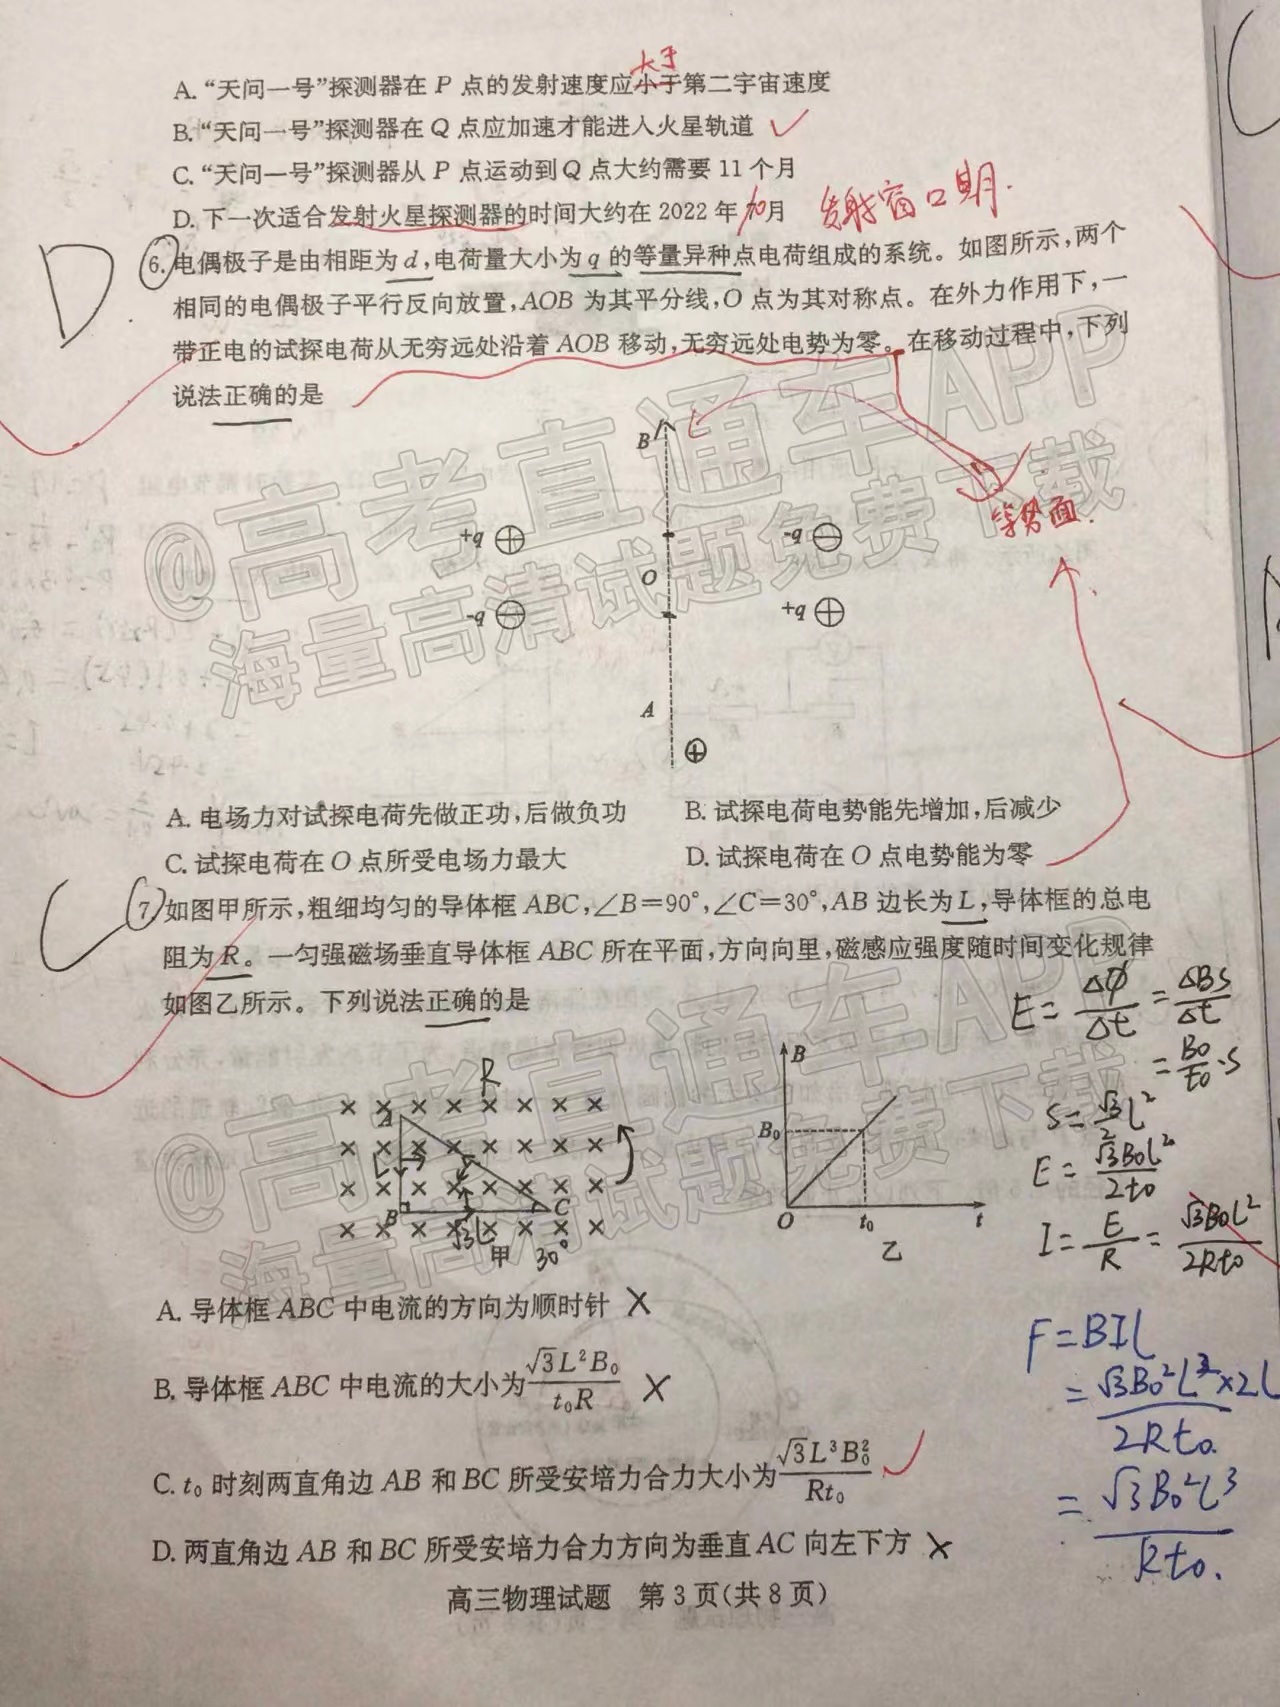 大于
A.“天问一号”探测器在 P 点的发射速度应小于第二宇宙速度
B.“天问一号”探测器在 Q 点应加速才能进入火星轨道
C.“天问一号”探测器从 P 点运动到 Q 点大约需要 11 个月
D.下一次适合发射火星探测器的时间大约在 2022 年10月 发射窗口期.
D.
6.电偶极子是由相距为 d,电荷量大小为 q 的等量异种点电荷组成的系统。如图所示,两个
相同的电偶极子平行反向放置,AOB 为其平分线,O 点为其对称点。在外力作用下,一
带正电的试探电荷从无穷远处沿着 AOB 移动,无穷远处电势为零。在移动过程中,下列
说法正确的是
B
等势面.
+q ⊕ -q ⊖
O
-q ⊖ +q ⊕
A
⊕
A.电场力对试探电荷先做正功,后做负功 B.试探电荷电势能先增加,后减少
C.试探电荷在 O 点所受电场力最大 D.试探电荷在 O 点电势能为零
C
7.如图甲所示,粗细均匀的导体框 ABC,∠B=90°,∠C=30°,AB 边长为 L,导体框的总电
阻为 R。一匀强磁场垂直导体框 ABC 所在平面,方向向里,磁感应强度随时间变化规律
如图乙所示。下列说法正确的是
E=ΔΦ/Δt=ΔBS/Δt
=B0/t0·S
S=√3/2L²
E=√3B0L²/2t0
I=E/R=√3B0L²/2Rt0
R
× × × × × × × ×
A
× × × × × × × ×
L
× × × × × × × ×
B C
× × × × × × × ×
√3L
甲 30°
B
B₀
O t₀ t
乙
A.导体框 ABC 中电流的方向为顺时针 ×
B.导体框 ABC 中电流的大小为√3L²B₀/t₀R ×
C.t₀ 时刻两直角边 AB 和 BC 所受安培力合力大小为√3L³B₀²/Rt₀
D.两直角边 AB 和 BC 所受安培力合力方向为垂直 AC 向左下方 ×
F=BIL
=√3B0²L²×2L/2Rt0
=√3B0²L³/Rt0.
高三物理试题 第 3 页(共 8 页)
@高考直通车APP
海量高清试题免费下载
@高考直通车APP
海量高清试题免费下载